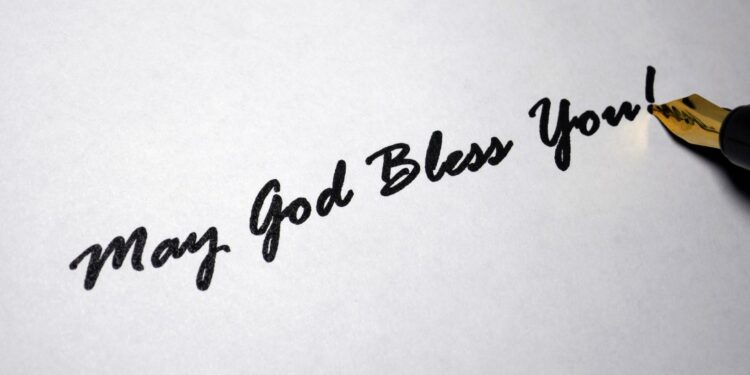 May God Bless You!